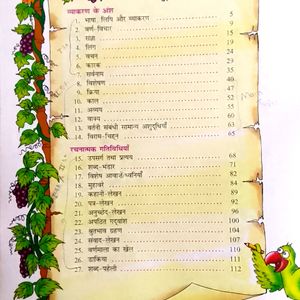 व्याकरण के अंश
1. भाषा, लिपि और व्याकरण 5
2. वर्ण-विचार 9
3. संज्ञा 15
4. लिंग 19
5. वचन 24
6. कारक 29
7. सर्वनाम 35
8. विशेषण 40
9. क्रिया 47
10. काल 51
11. अव्यय 55
12. वाक्य 60
13. वर्तनी संबंधी सामान्य अशुद्धियाँ 63
14. विराम-चिह्न 65
रचनात्मक गतिविधियाँ
15. उपसर्ग तथा प्रत्यय 68
16. शब्द-भंडार 71
17. विशेष आवाज़ें/ध्वनियाँ 82
18. मुहावरे 84
19. कहानी-लेखन 89
20. पत्र-लेखन 92
21. अनुच्छेद-लेखन 96
22. अपठित गद्यांश 100
23. श्रुतभाव ग्रहण 104
24. संवाद-लेखन 107
25. वर्णमाला का खेल 110
26. डाकिया 111
27. शब्द-पहेली 112